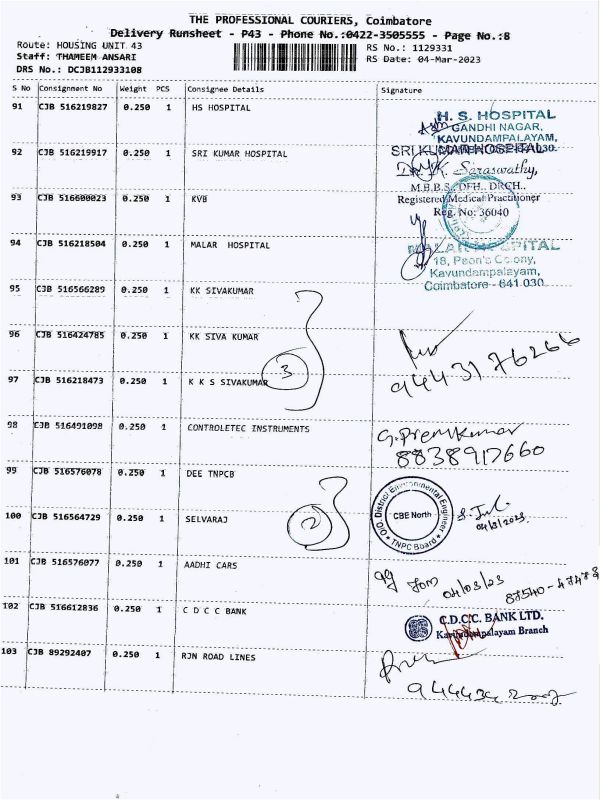 THE PROFESSIONAL COURIERS, Coimbatore
Delivery Runsheet - P43 - Phone No.:0422-3505555 - Page No.:8
Route: HOUSING UNIT 43
RS No.: 1129331
Staff: THAMEEM ANSARI
RS Date: 04-Mar-2023
DRS No.: DCJB112933108
S No Consignment No Weight PCS Consignee Details Signature
91 CJB 516219827 0.250 1 HS HOSPITAL
H. S. HOSPITAL
GANDHI NAGAR,
KAVUNDAMPALAYAM,
92 CJB 516219917 0.250 1 SRI KUMAR HOSPITAL
SRI KUMAR HOSPITAL
Dr. K. Saraswathy,
M.B.B.S., DFH., DRCH.,
Registered Medical Practitioner
Reg. No: 36040
93 CJB 516600023 0.250 1 KVB
94 CJB 516218504 0.250 1 MALAR HOSPITAL
MALAR HOSPITAL
18, Peon's Colony,
Kavundampalayam,
Coimbatore - 641 030.
95 CJB 516566289 0.250 1 KK SIVAKUMAR
96 CJB 516424785 0.250 1 KK SIVA KUMAR
97 CJB 516218473 0.250 1 K K S SIVAKUMAR
3
9443176266
98 CJB 516491098 0.250 1 CONTROLETEC INSTRUMENTS
G. Premkumar
8838917660
99 CJB 516576078 0.250 1 DEE TNPCB
O/O. District Environmental Engineer
CBE North
* TNPC Board *
04/3/2023
100 CJB 516564729 0.250 1 SELVARAJ
2
101 CJB 516576077 0.250 1 AADHI CARS
04/03/23
102 CJB 516612836 0.250 1 C D C C BANK
C.D.C.C. BANK LTD.
Kavundampalayam Branch
103 CJB 89292407 0.250 1 RJN ROAD LINES